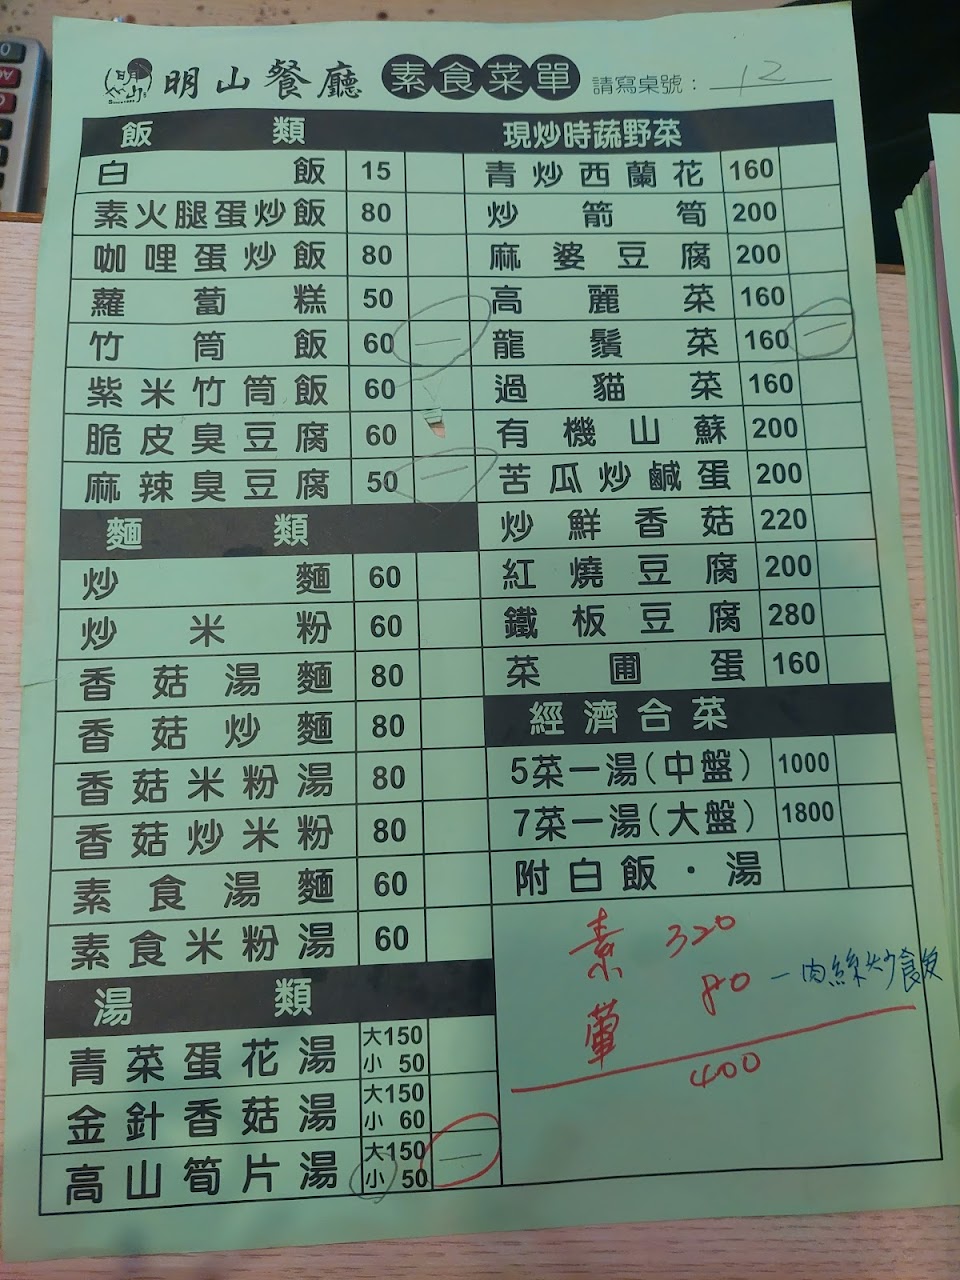 明山餐廳 素食菜單 請寫桌號：12
飯類
白飯 15
素火腿蛋炒飯 80
咖哩蛋炒飯 80
蘿蔔糕 50
竹筒飯 60 一
紫米竹筒飯 60
脆皮臭豆腐 60
麻辣臭豆腐 50 一
麵類
炒麵 60
炒米粉 60
香菇湯麵 80
香菇炒麵 80
香菇米粉湯 80
香菇炒米粉 80
素食湯麵 60
素食米粉湯 60
湯類
青菜蛋花湯 大150 小 50
金針香菇湯 大150 小 60
高山筍片湯 大150 小 50 一
現炒時蔬野菜
青炒西蘭花 160
炒箭筍 200
麻婆豆腐 200
高麗菜 160
龍鬚菜 160 一
過貓菜 160
有機山蘇 200
苦瓜炒鹹蛋 200
炒鮮香菇 220
紅燒豆腐 200
鐵板豆腐 280
菜圃蛋 160
經濟合菜
5菜一湯(中盤) 1000
7菜一湯(大盤) 1800
附白飯・湯
素 320
葷 80 一肉絲炒飯
400